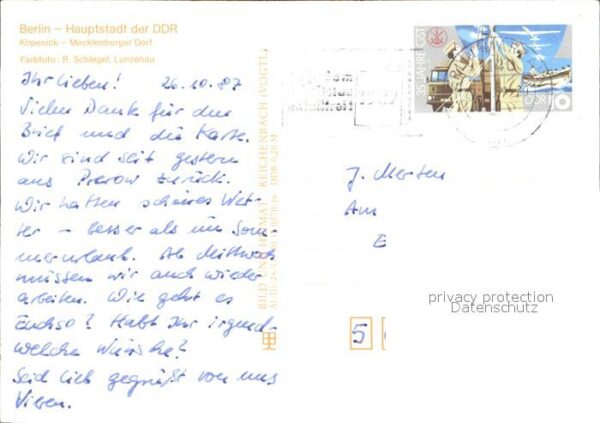 Berlin – Hauptstadt der DDR
Köpenick – Mecklenburger Dorf
Farbfoto: R. Schlegel, Lunzenau
Ihr Lieben! 26.10.87
Vielen Dank für den
Brief und die Karte.
Wir sind seit gestern
aus Prerow zurück.
Wir hatten schönes Wet-
ter – besser als im Som-
merurlaub. Ab Mittwoch
müssen wir auch wieder
arbeiten. Wie geht es
Euch so? Habt Ihr irgend-
welche Wünsche?
Seid lieb gegrüßt von uns
Vieren.
BILD UND HEIMAT REICHENBACH (VOGTL)
DDR 0,20 M
35 JAHRE GST
DDR 10
J. Merten
Am
E
5
privacy protection
Datenschutz